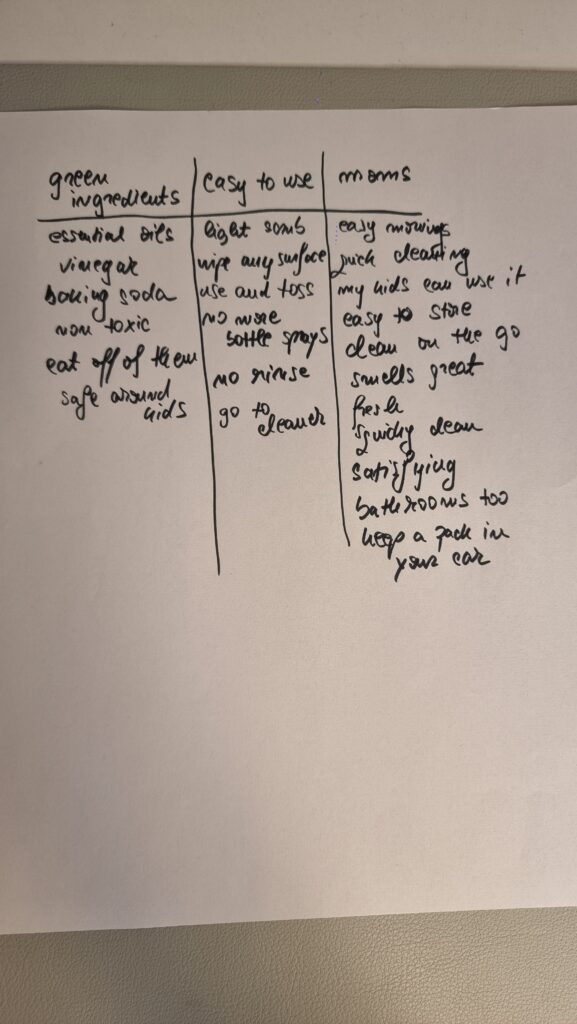 green
ingredients
easy to use
moms
essential oils
vinegar
baking soda
non toxic
eat off of them
safe around
kids
light
wipe any surface
use and toss
no more
bottle sprays
no rinse
go to
cleaner
easy
quick cleaning
my kids can use it
easy to store
clean on the go
smells great
fresh
clean
satisfying
bathrooms too
keep a pack in
your car